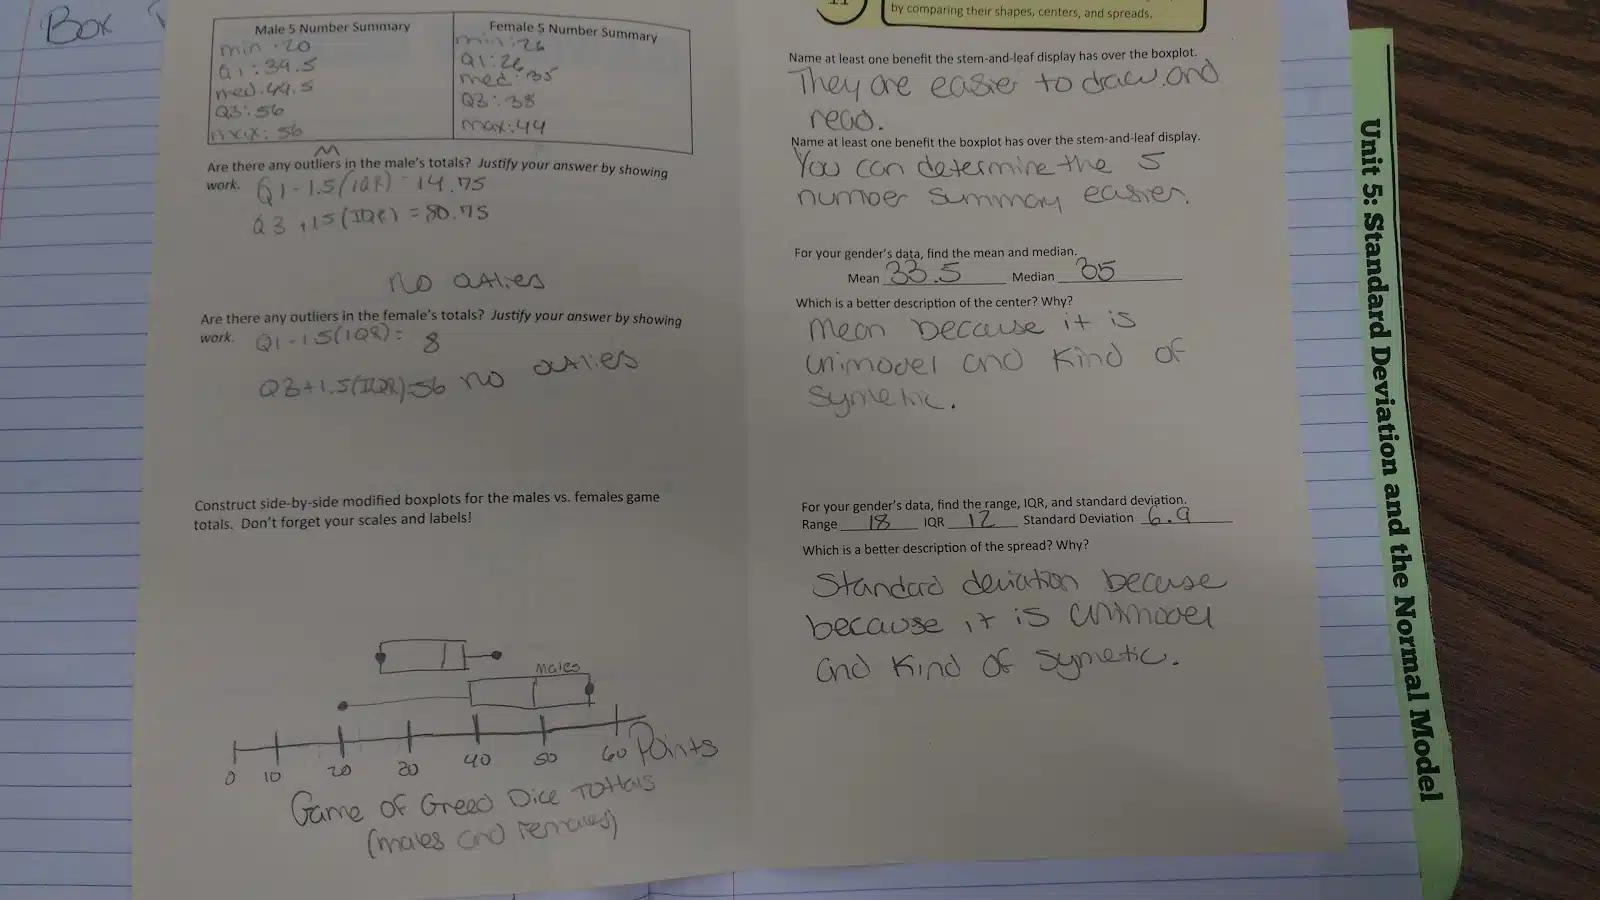 Box
Male 5 Number Summary
min: 20
Q1: 39.5
med: 44.5
Q3: 56
max: 56
Female 5 Number Summary
min: 26
Q1: 26
med: 35
Q3: 38
max: 44
Are there any outliers in the male's totals? Justify your answer by showing
work. Q1 - 1.5(IQR) = 14.75
Q3 + 1.5(IQR) = 80.75
no outlies
Are there any outliers in the female's totals? Justify your answer by showing
work. Q1 - 1.5(IQR) = 8
Q3 + 1.5(IQR) = 56 no outlies
Construct side-by-side modified boxplots for the males vs. females game
totals. Don't forget your scales and labels!
males
0 10 20 30 40 50 60 Points
Game of Greed Dice Tottals
(males and Females)
11
by comparing their shapes, centers, and spreads.
Name at least one benefit the stem-and-leaf display has over the boxplot.
They are easier to draw and
read.
Name at least one benefit the boxplot has over the stem-and-leaf display.
You can determine the 5
number summary easier.
For your gender's data, find the mean and median.
Mean 33.5 Median 35
Which is a better description of the center? Why?
Mean because it is
unimodel and kind of
symetic.
For your gender's data, find the range, IQR, and standard deviation.
Range 18 IQR 12 Standard Deviation 6.9
Which is a better description of the spread? Why?
Standard deviation because
because it is unimodel
and kind of symetic.
Unit 5: Standard Deviation and the Normal Model